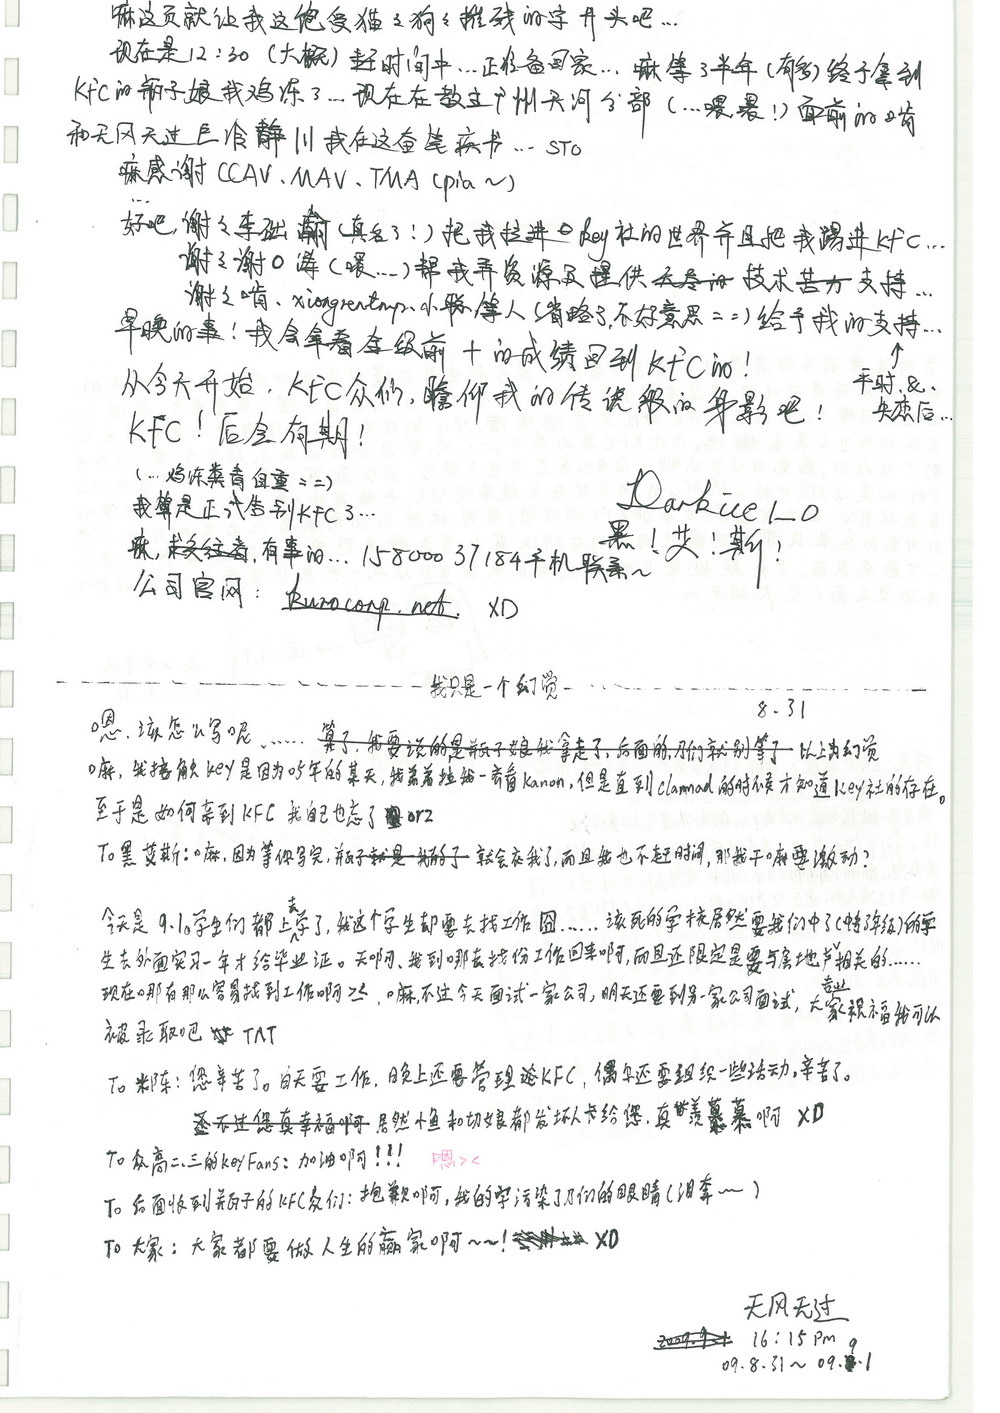 嘛这页就让我这饱受猫々狗々摧残的字开头吧…
现在是12:30（大概）赶时间中…正准备回家…嘛等了半年（有多）终于拿到
KFC的瓶子娘我鸡冻了…现在在教主广州天河分部（…喂喂！）面前的啃
和无风无过巨冷静川我在这奋笔疾书… STO
嘛感谢CCAV、MAV、TMA（pia～）
…
好吧，谢々李 （真名了！）把我拉进key社的世界并且把我踢进KFC…
谢々谢O涛（喂…）帮我弄资源及提供无尽的技术苦力支持…
谢々啃、xiongrentmp、小 等人（省略了，不好意思＝＝）给予我的支持…
↑
平时&
失恋后…
早晚的事！我会拿着全级前十的成绩回到KFC的！
从今天开始，KFC众们，瞻仰我的传说级的身影吧！
KFC！后会有期！
（…鸡冻类者自重＝＝）
我算是正式告别KFC了…
嘛，求交往者，有事的…15800037184手机联系～
公司官网：kurocorp.net. XD
Darkice L_O
黑！艾！斯！
我只是一个幻觉
8.31
嗯，该怎么写呢……算了，我要说的是瓶子娘我拿走了，后面的刀们就别等了 以上为幻觉
嘛，我接触key是因为05年的某天，我 着 一部看kanon，但是直到clannad的时候才知道key社的存在。
至于是如何来到KFC 我自己也忘了 orz
To 黑艾斯：嘛，因为等你写完，瓶子就是我的了 就会在我了，而且我也不赶时间，那我干嘛要激动？
今天是9.1，学生们都上去学了，我这个学生却要去找工作 囧……该死的学校居然要我们中了（中专3年级）的学
生去外面实习一年才给毕业证。天啊，我到哪去找份工作回来啊，而且还限定是要与房地产相关的……
现在哪有那么容易找到工作啊><，嘛，不过今天面试一家公司，明天还要到另一家公司面试，大家祝福我可以
被录取吧 TAT
To 米陈：您辛苦了。白天要工作，晚上还要管理KFC，偶尔还要组织一些活动，辛苦了。
不过您真幸福啊 居然小鱼和切娘都发坏人卡给您，真羡慕慕啊 XD
To 众高二、三的keyFans：加油啊！！！ 嗯><
To 后面收到瓶子的KFC众们：抱歉啊，我的字污染了刀们的眼睛（泪奔～）
To 大家：大家都要做人生的赢家啊～～！ XD
无风无过
2009.9.1 16:15pm
09.8.31～09.9.1